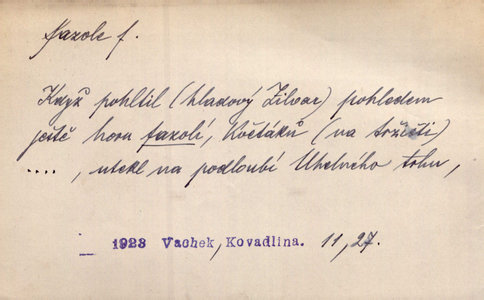 fazole f.
Když pohltil (hladový Zilvar) pohledem
ještě horu fazolí, květáků (na tržišti)
...., utekl na podloubí Uhelného trhu,
1923 Vachek, Kovadlina. 11, 27.